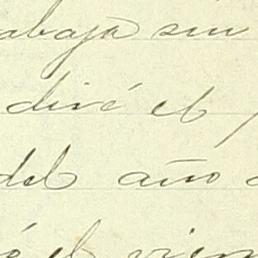 abaja sin
diré el
del año
ó el vien